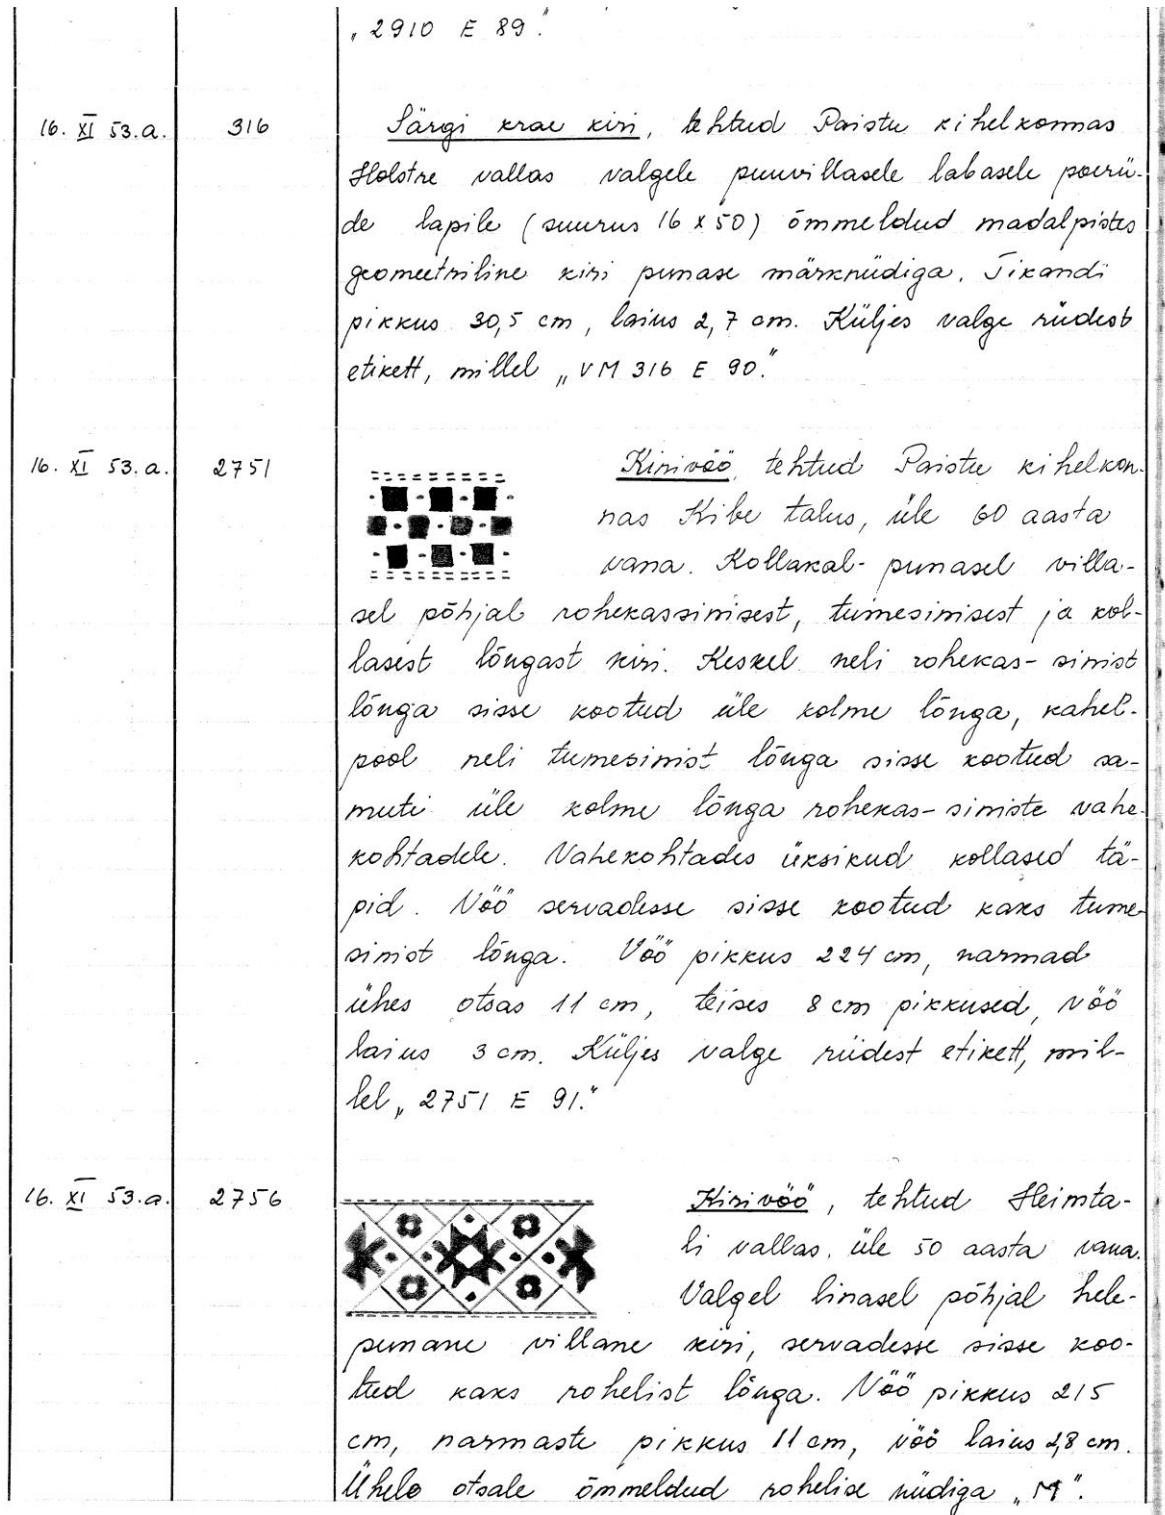 „2910 E 89."
16. XI 53.a. 316 Särgi krae kiri, tehtud Paistu kihelkonnas
Holstre vallas valgele puuvillasele labasele poerii-
de lapile (suurus 16 x 50) õmmeldud madalpistes
geomeetriline kiri punase märkniidiga. Tikandi
pikkus 30,5 cm, laius 2,7 cm. Küljes valge riidest
etikett, millel „VM 316 E 90."
16. XI 53.a. 2751 Kirivöö, tehtud Paistu kihelkon-
nas Kibe talus, üle 60 aasta
vana. Kollakal-punasel villa-
sel põhjal rohekassinisest, tumesinisest ja kol-
lasest lõngast kiri. Keskel neli rohekas-sinist
lõnga sisse kootud üle kolme lõnga, kahel-
pool neli tumesinist lõnga sisse kootud sa-
muti üle kolme lõnga rohekas-siniste vahe-
kohtadele. Vahekohtades üksikud kollased tä-
pid. Vöö servadesse sisse kootud kaks tume-
sinist lõnga. Vöö pikkus 224 cm, narmad
ühes otsas 11 cm, teises 8 cm pikkused, vöö
laius 3 cm. Küljes valge riidest etikett, mil-
lel „2751 E 91."
16. XI 53.a. 2756 Kirivöö, tehtud Heimta-
li vallas, üle 50 aasta vana.
Valgel linasel põhjal hele-
punane villane kiri, servadesse sisse koo-
tud kaks rohelist lõnga. Vöö pikkus 215
cm, narmaste pikkus 11 cm, vöö laius 2,8 cm.
Ühele otsale õmmeldud rohelise niidiga „M".